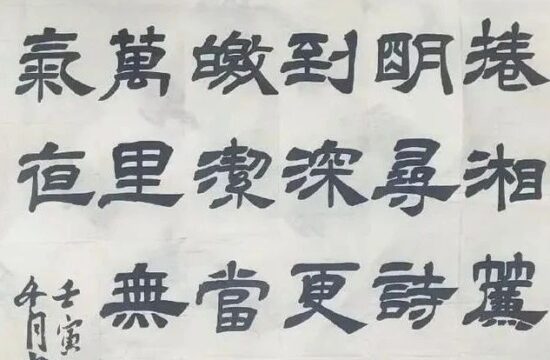 捲湘簾
明尋詩
到深更
皦潔當
萬里無
氣夜
壬寅
午月